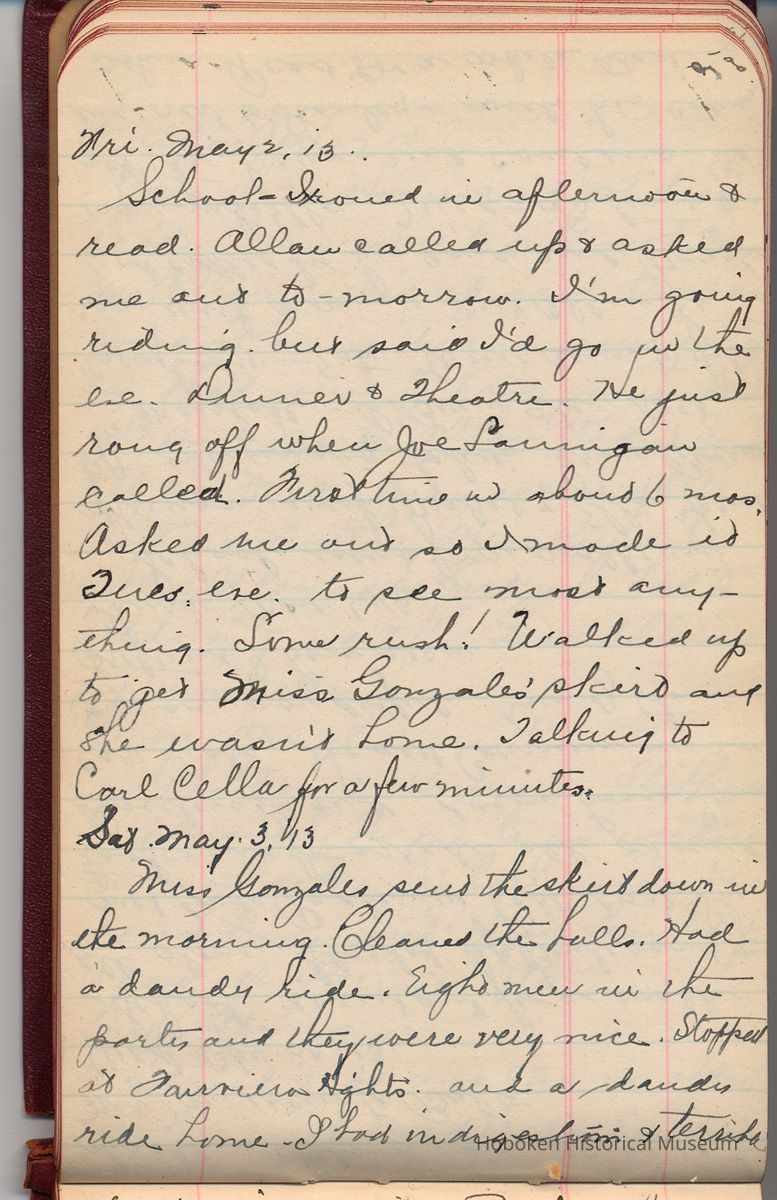 Fri. May 2, 13.
School - Ironed in afternoon &
read. Allan called up & asked
me out to-morrow. I'm going
riding. but said I'd go in the
eve. Dinner & Theatre. He just
rang off when Joe Lannigan
called. First time in about 6 mos.
Asked me out so I made it
Tues. eve. to see most any-
thing. Some rush! Walked up
to get Miss Gonzales' skirt and
she wasn't home. Talking to
Carl Cella for a few minutes.
Sat. May. 3, 13
Miss Gonzales send the skirt down in
the morning. Cleaned the halls. Had
a dandy ride. Eight men in the
party and they were very nice. Stopped
at Fairview Hghts. and a dandy
ride home - I had indigestion & terrible
Hoboken Historical Museum